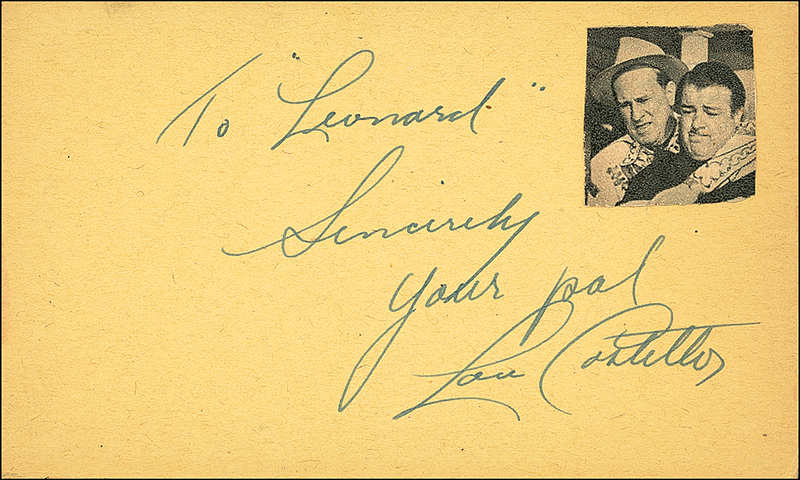 To "Leonard"
Sincerely
your pal
Lou Costello